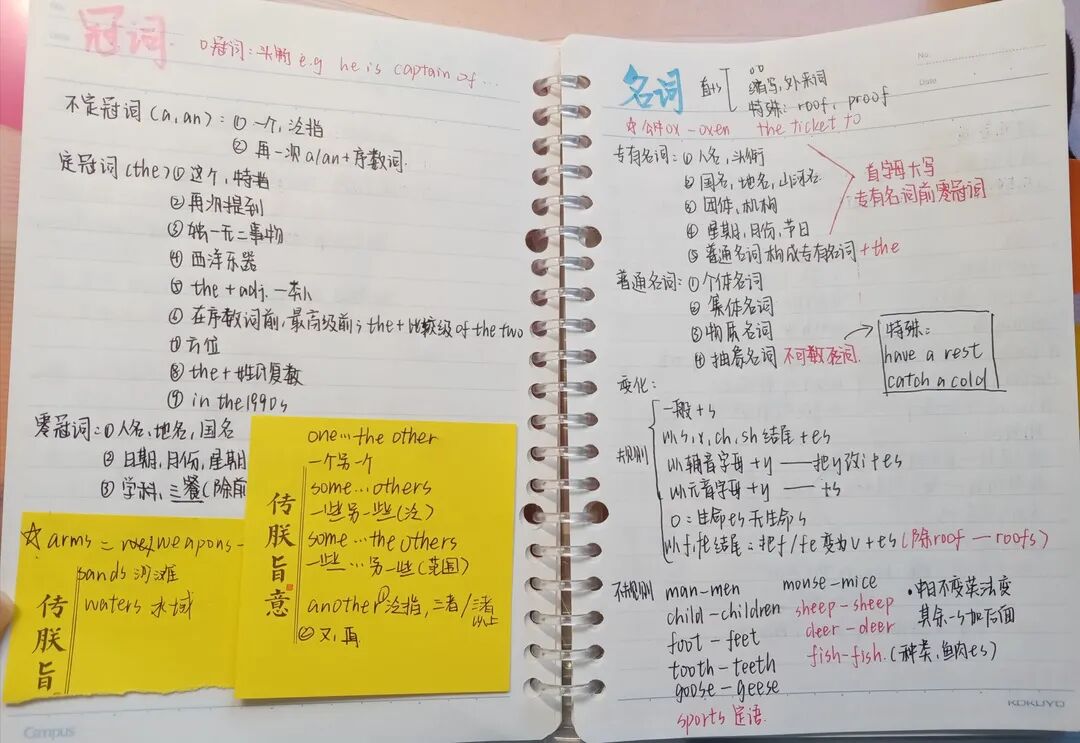 冠词
0冠词:头衔 e.g he is captain of ...
不定冠词(a,an):① 一个,泛指
② 再一次 a/an+序数词
定冠词(the)① 这个,特指
② 再次提到
③ 独一无二事物
④ 西洋乐器
⑤ the + adj. 一类人
⑥ 在序数词前,最高级前;the+比较级 of the two
⑦ 方位
⑧ the + 姓氏复数
⑨ in the 1990s
零冠词:① 人名,地名,国名
② 日期,月份,星期
③ 学科,三餐(除前
☆ arms = weapons
sands 沙滩
waters 水域
传朕旨
one...the other
一个另一个
some...others
一些另一些(泛)
some...the others
一些...另一些(范围)
another ① 泛指,三者/三者以上
② 又,再
传朕旨意
Campus
No.
Date
名词
直+s
缩写,外来词
特殊:roof,proof
☆公牛ox-oxen the ticket to
专有名词:① 人名,头衔
② 国名,地名,山河名
③ 团体,机构
④ 星期,月份,节日
⑤ 普通名词构成专有名词+the
首字母大写
专有名词前零冠词
普通名词:① 个体名词
② 集体名词
③ 物质名词
④ 抽象名词 不可数名词
特殊:
have a rest
catch a cold
变化:
规则
一般+s
以s,x,ch,sh结尾+es
以辅音字母+y——把y改i+es
以元音字母+y——+s
o:生命es无生命s
以f,fe结尾:把f/fe变为v+es(除roof—roofs)
不规则 man-men mouse-mice
child-children sheep-sheep
foot-feet deer-deer
tooth-teeth fish-fish.(种类、鱼肉es)
goose-geese
sports 定语
•中日不变英法变
其余-s加后面
KOKUYO